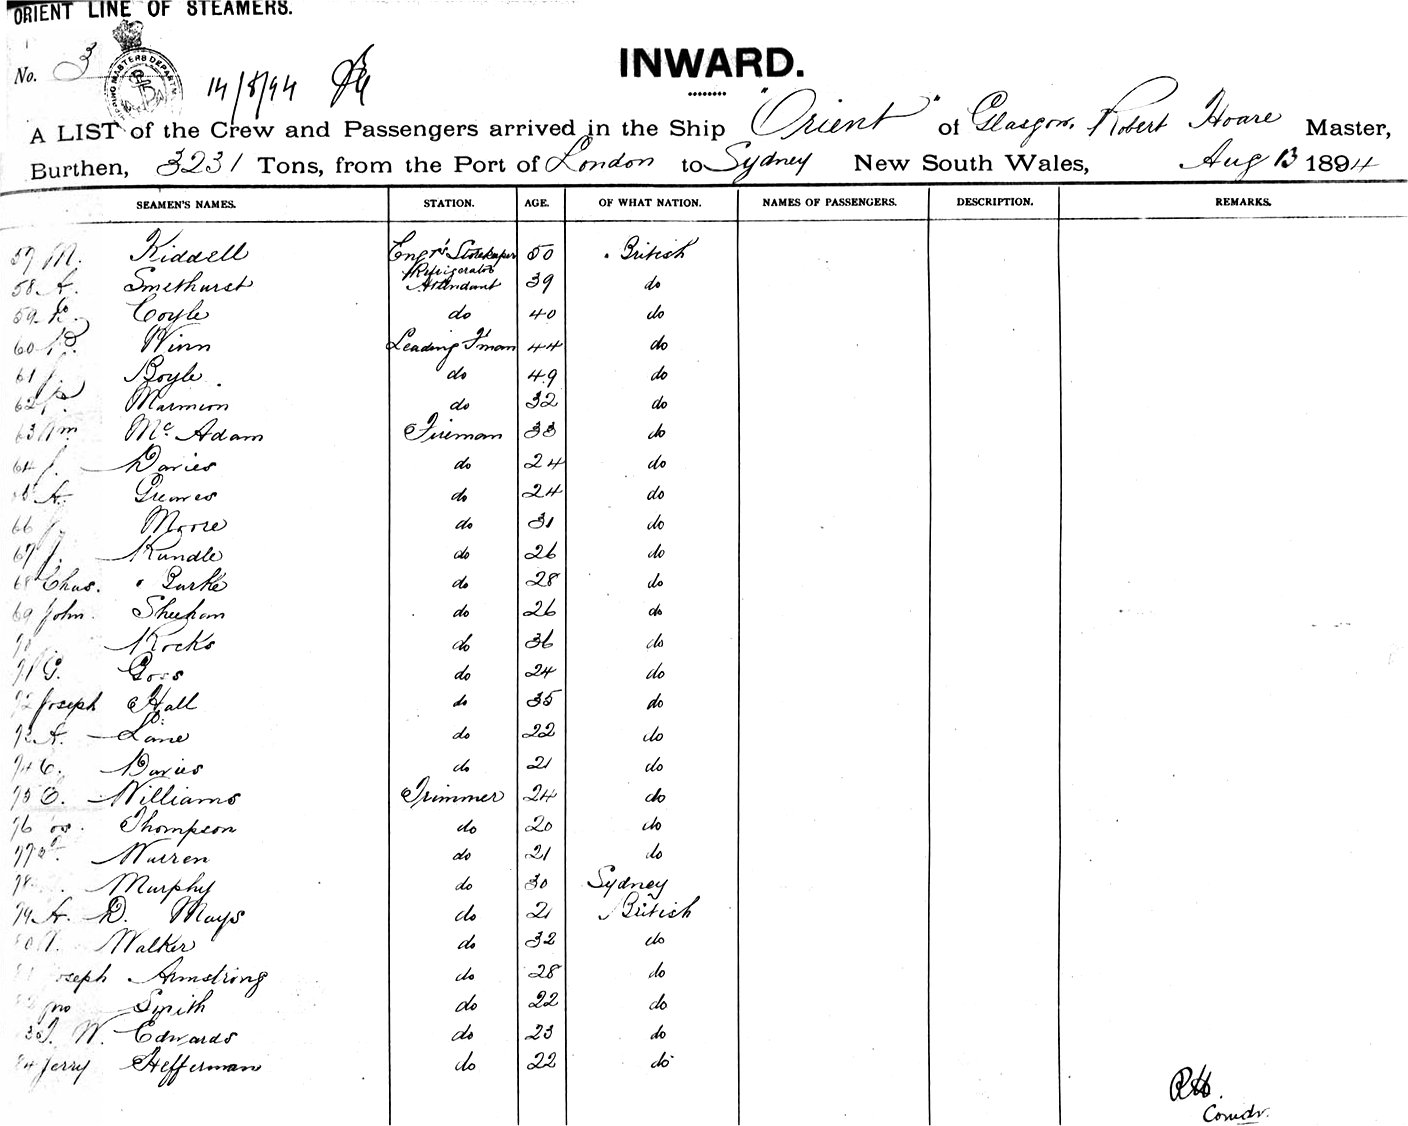 ORIENT LINE OF STEAMERS.
No. 3
14/8/94
INWARD.
A LIST of the Crew and Passengers arrived in the Ship "Orient" of Glasgow, Robert Hoare Master,
Burthen, 3231 Tons, from the Port of London to Sydney New South Wales, Aug 13 1894
SEAMEN'S NAMES. STATION. AGE. OF WHAT NATION. NAMES OF PASSENGERS. DESCRIPTION. REMARKS.
57 M. Kiddell Engr's Storekeeper 50 British
58 A. Smethurst Refrigerator Attendant 39 do
59 Coyle do 40 do
60 Winn Leading F'man 44 do
61 J. Boyle do 49 do
62 P. Marmion do 32 do
63 Wm Mc Adam Fireman 33 do
64 J. Davies do 24 do
A. Greaves do 24 do
66 J. Moore do 31 do
67 J. Rundle do 26 do
68 Chas. Burke do 28 do
69 John Sheehan do 26 do
70 Rocks do 36 do
71 G. Goss do 24 do
72 Joseph Hall do 35 do
73 A. Lane do 22 do
74 C. Davies do 21 do
75 E. Williams Trimmer 24 do
76 Thompson do 20 do
77 Warren do 21 do
78 Murphy do 30 Sydney
79 A. D. Mays do 21 British
80 W. Walker do 32 do
Joseph Armstrong do 28 do
Jno Smith do 22 do
83 J. W. Edwards do 23 do
84 Jerry Hefferman do 22 do
RH.
Comdr.